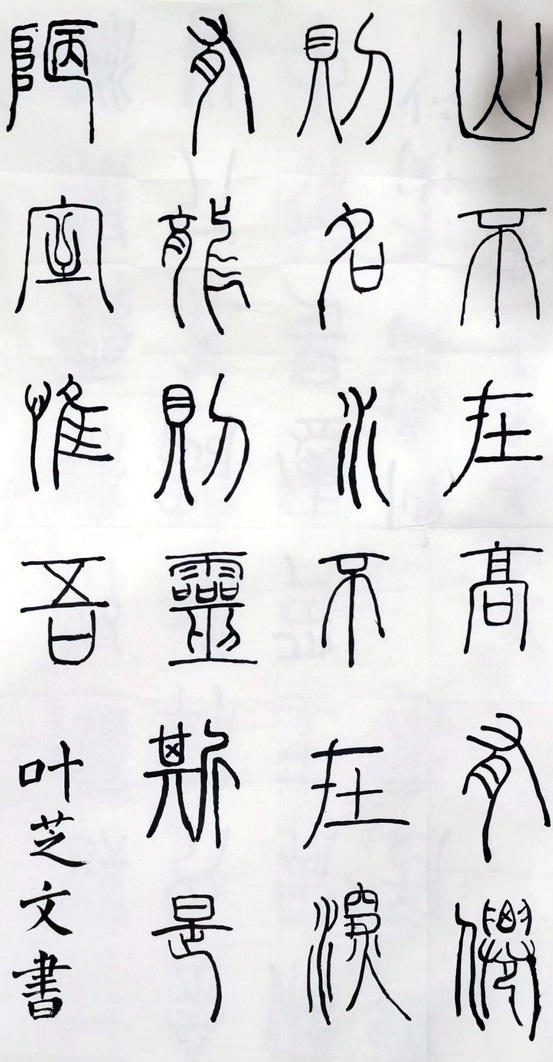 山不在高有僊
則名水不在深
有龍則靈斯是
陋室惟吾
叶芝文書